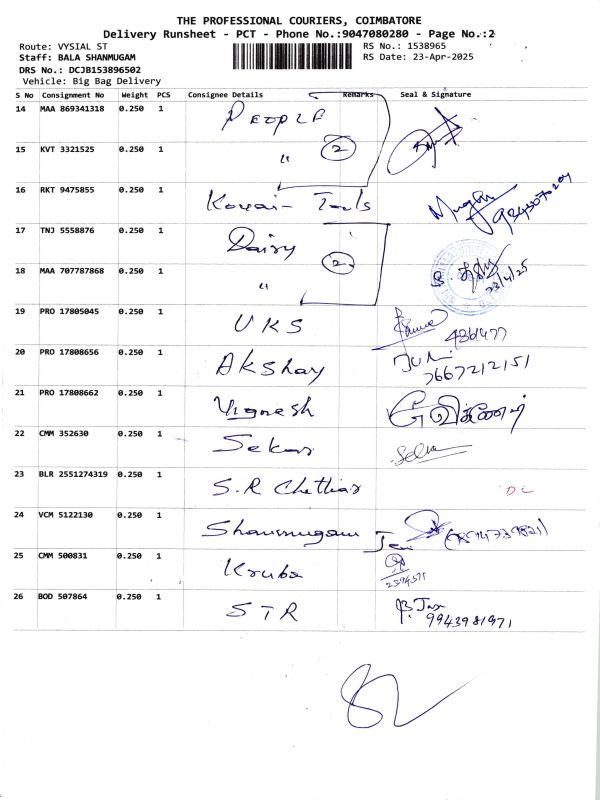 THE PROFESSIONAL COURIERS, COIMBATORE
Delivery Runsheet - PCT - Phone No.:9047080280 - Page No.:2
Route: VYSIAL ST
RS No.: 1538965
Staff: BALA SHANMUGAM
RS Date: 23-Apr-2025
DRS No.: DCJB153896502
Vehicle: Big Bag Delivery
S No Consignment No Weight PCS Consignee Details Remarks Seal & Signature
14 MAA 869341318 0.250 1 People
15 KVT 3321525 0.250 1 " 2
16 RKT 9475855 0.250 1 Kovai Tools
17 TNJ 5558876 0.250 1 Dairy
18 MAA 707787868 0.250 1 " 2 23/4/25
19 PRO 17805045 0.250 1 UKS
20 PRO 17808656 0.250 1 Akshay 7667212151
21 PRO 17808662 0.250 1 Vignesh
22 CMM 352630 0.250 1 Sekar
23 BLR 2551274319 0.250 1 S.R Chettiar DC
24 VCM 5122130 0.250 1 Shanmugam
25 CMM 500831 0.250 1 Kruba
26 BOD 507864 0.250 1 STR 9943981971